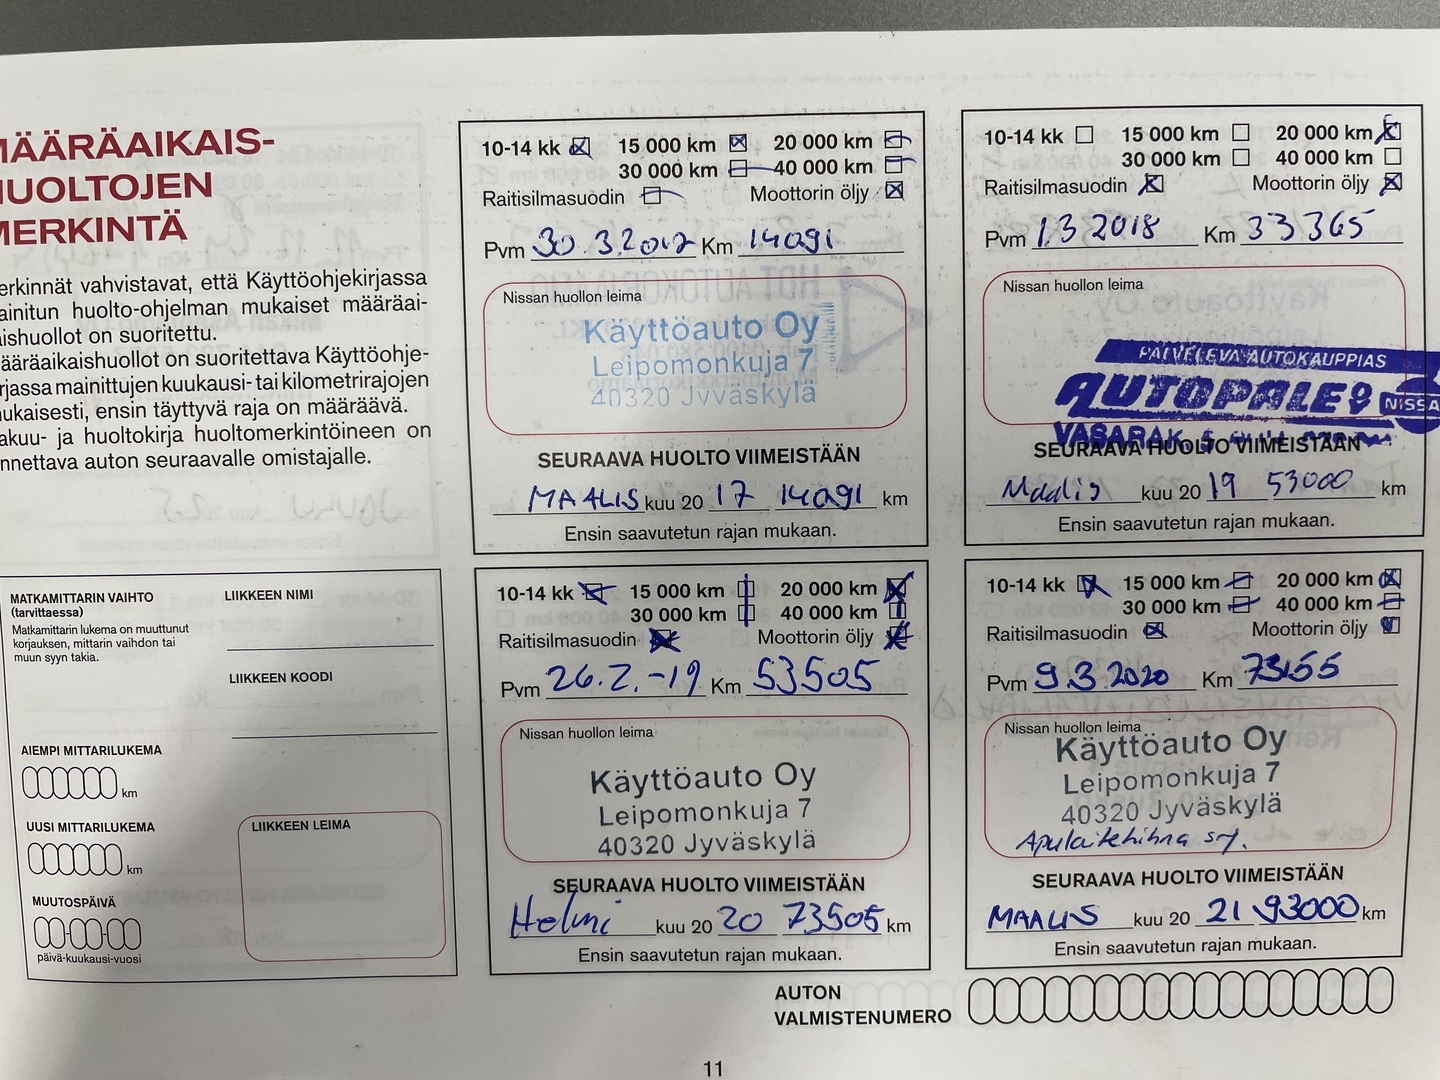 MÄÄRÄAIKAIS-
HUOLTOJEN
MERKINTÄ
erkinnät vahvistavat, että Käyttöohjekirjassa
ainitun huolto-ohjelman mukaiset määräai-
aishuollot on suoritettu.
ääräaikaishuollot on suoritettava Käyttöohje-
rjassa mainittujen kuukausi- tai kilometrirajojen
ukaisesti, ensin täyttyvä raja on määräävä.
akuu- ja huoltokirja huoltomerkintöineen on
nnettava auton seuraavalle omistajalle.
MATKAMITTARIN VAIHTO
(tarvittaessa)
Matkamittarin lukema on muuttunut
korjauksen, mittarin vaihdon tai
muun syyn takia.
LIIKKEEN NIMI
LIIKKEEN KOODI
AIEMPI MITTARILUKEMA
km
UUSI MITTARILUKEMA
km
MUUTOSPÄIVÄ
päivä-kuukausi-vuosi
LIIKKEEN LEIMA
10-14 kk 15 000 km 20 000 km
30 000 km 40 000 km
Raitisilmasuodin Moottorin öljy
Pvm 30.3.2017 Km 14091
Nissan huollon leima
Käyttöauto Oy
Leipomonkuja 7
40320 Jyväskylä
SEURAAVA HUOLTO VIIMEISTÄÄN
MAALIS kuu 20 17 14091 km
Ensin saavutetun rajan mukaan.
10-14 kk 15 000 km 20 000 km
30 000 km 40 000 km
Raitisilmasuodin Moottorin öljy
Pvm 1.3 2018 Km 33365
Nissan huollon leima
PALVELEVA AUTOKAUPPIAS
AUTOPALE
NISSA
SEURAAVA HUOLTO VIIMEISTÄÄN
Maalis kuu 20 19 53000 km
Ensin saavutetun rajan mukaan.
10-14 kk 15 000 km 20 000 km
30 000 km 40 000 km
Raitisilmasuodin Moottorin öljy
Pvm 26.2.-19 Km 53505
Nissan huollon leima
Käyttöauto Oy
Leipomonkuja 7
40320 Jyväskylä
SEURAAVA HUOLTO VIIMEISTÄÄN
Helmi kuu 20 20 73505 km
Ensin saavutetun rajan mukaan.
10-14 kk 15 000 km 20 000 km
30 000 km 40 000 km
Raitisilmasuodin Moottorin öljy
Pvm 9.3.2020 Km 73155
Nissan huollon leima
Käyttöauto Oy
Leipomonkuja 7
40320 Jyväskylä
Apulaitehihna
SEURAAVA HUOLTO VIIMEISTÄÄN
MAALIS kuu 20 21 93000 km
Ensin saavutetun rajan mukaan.
AUTON
VALMISTENUMERO
11